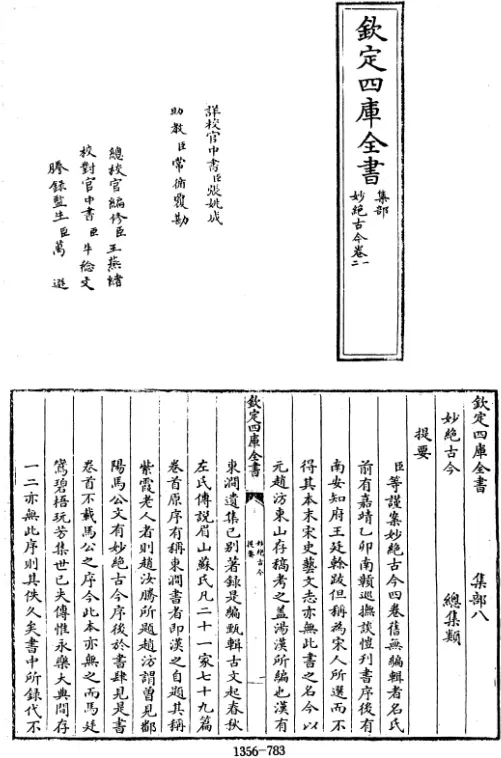 欽定四庫全書
集部
妙絶古今卷一
二
詳校官中書臣張姚成
助教臣常循覆勘
總校官編修臣王燕緒
校對官中書臣牛稔文
謄錄監生臣萬
欽定四庫全書
集部八
妙絶古今
總集類
提要
臣等謹案妙絶古今四卷舊無編輯者名氏
前有嘉靖乙卯南贛巡撫談愷刊書序後有
南安知府王廷幹跋但稱為宋人所選而不
得其本末宋史藝文志亦無此書之名今以
元趙汸東山存稿考之蓋湯漢所編也漢有
欽定四庫全書
妙絶古今
提要
一
東澗遺集已别著録是編甄輯古文起春秋
左氏傳訖眉山蘇氏凡二十一家七十九篇
卷首原序有稱東澗書者即漢之自題其稱
紫霞老人者則趙汝騰所題趙汸謂曽見鄱
陽馬公文有妙絶古今序後於書肆見是書
卷首不載馬公之序今此本亦無之而馬廷
鸞碧梧玩芳集世已失傳惟永樂大典間存
一二亦無此序則其佚久矣書中所録代不
1356-783